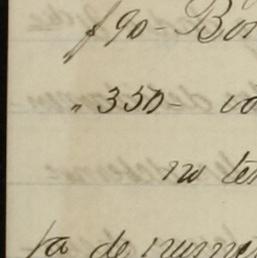 f 90 - Bon
" 350 - vo
no ter
ta de numer